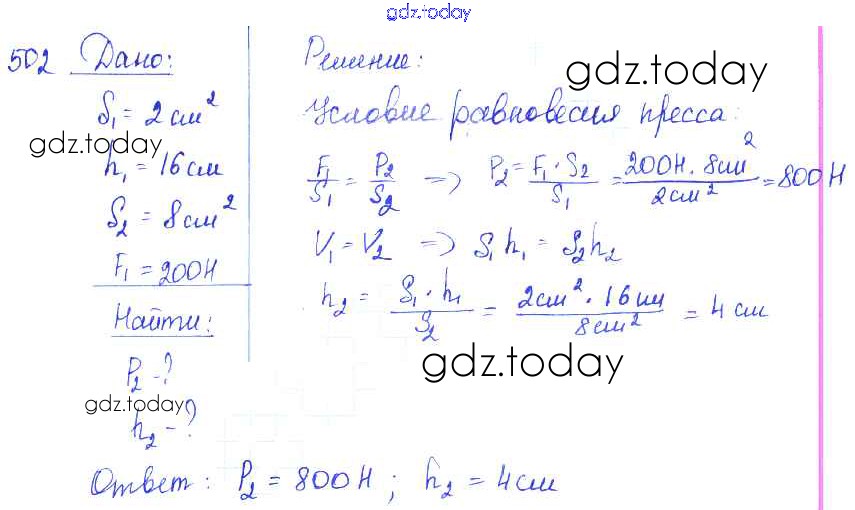 gdz.today
502 Дано:
S₁ = 2 см²
gdz.today
h₁ = 16 см
S₂ = 8 см²
F₁ = 200 Н
Найти:
P₂ - ?
gdz.today
h₂ - ?
Решение:
gdz.today
Условие равновесия пресса:
F₁/S₁ = P₂/S₂ => P₂ = F₁ · S₂/S₁ = 200 Н · 8 см²/2 см² = 800 Н
V₁ = V₂ => S₁ h₁ = S₂ h₂
h₂ = S₁ · h₁/S₂ = 2 см² · 16 см/8 см² = 4 см
gdz.today
Ответ: P₂ = 800 Н; h₂ = 4 см